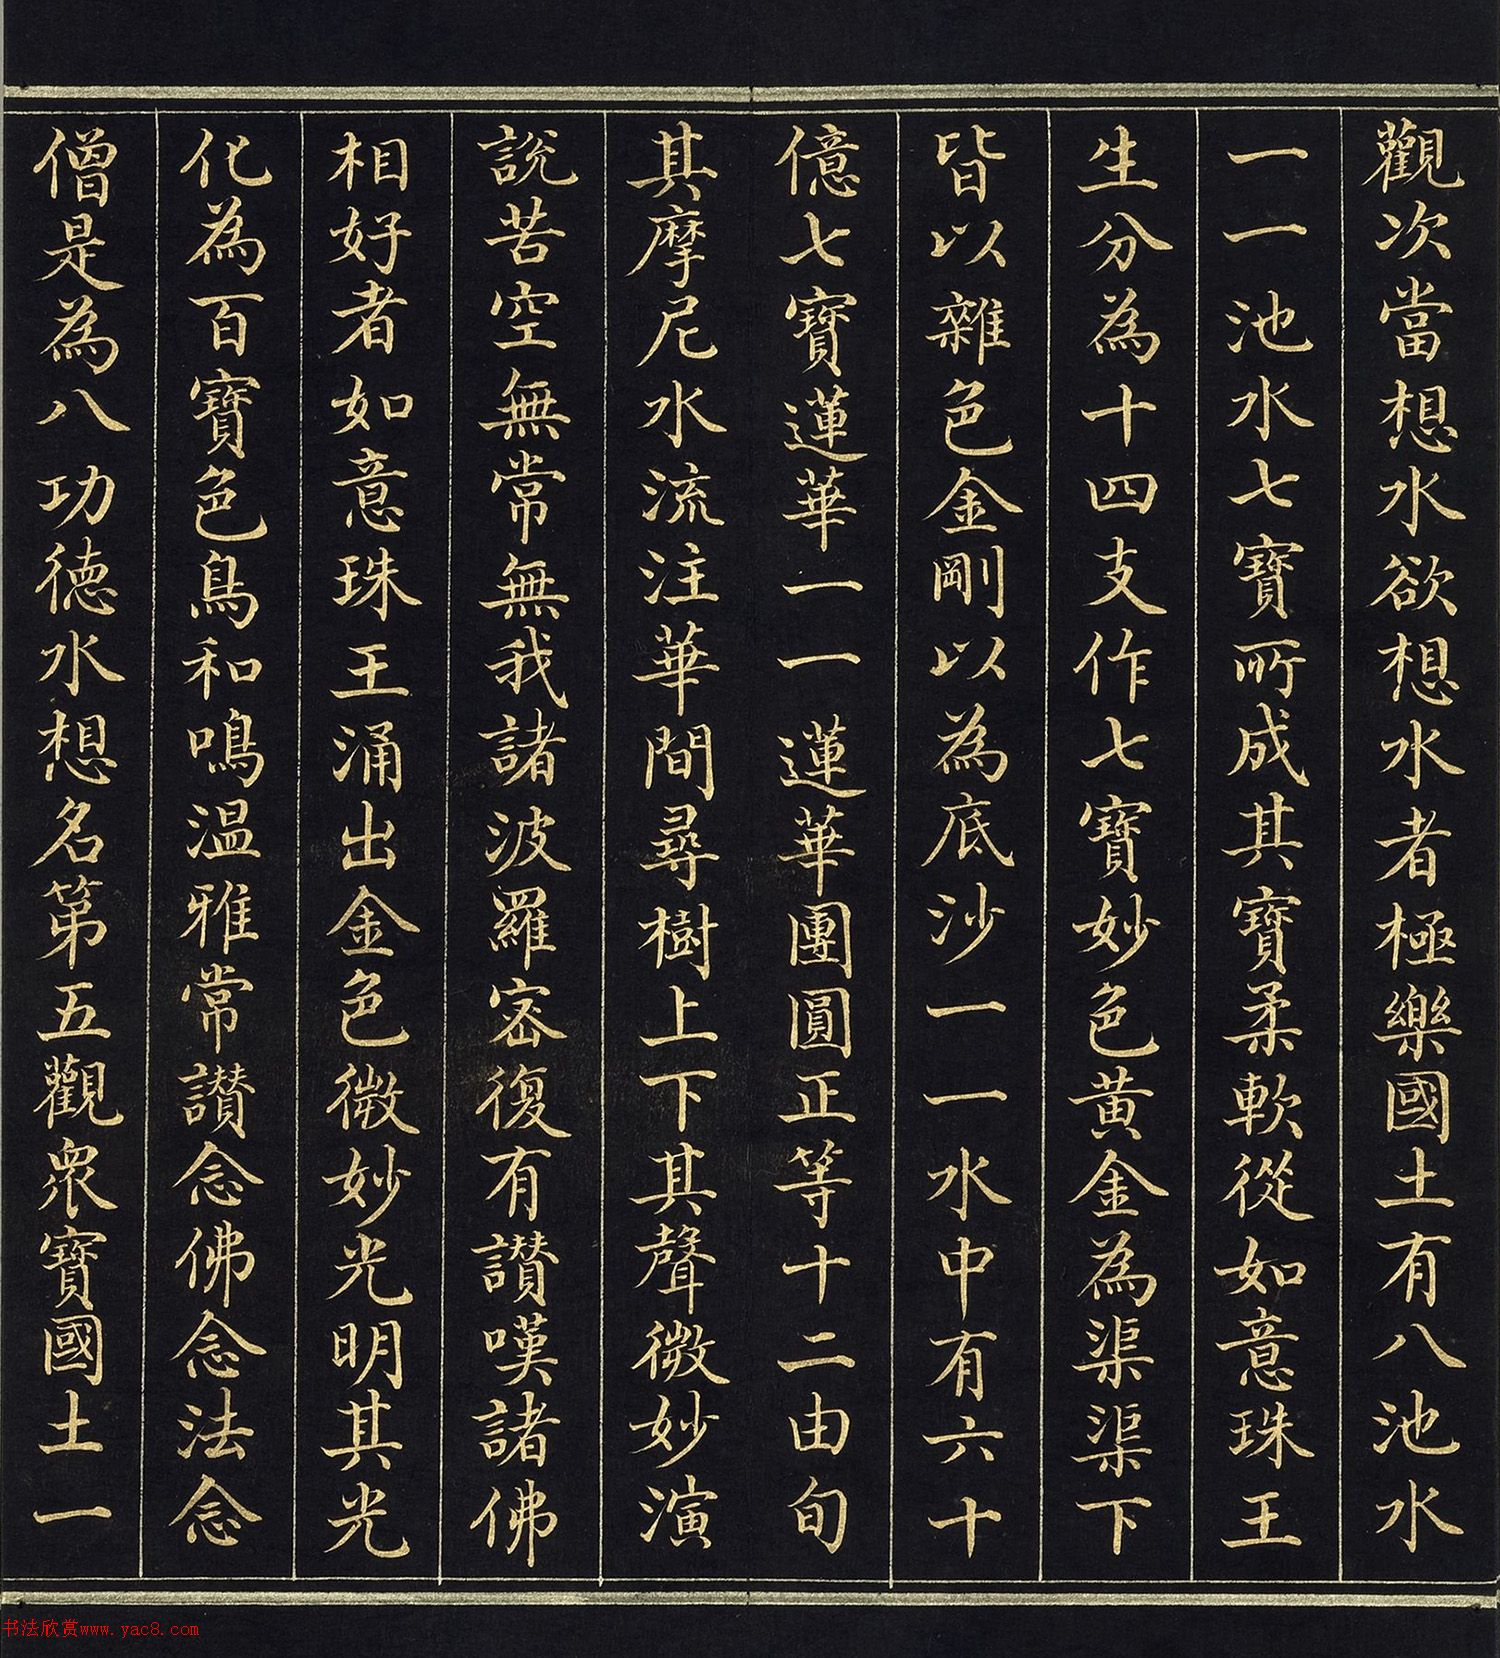 觀次當想水欲想水者極樂國土有八池水
一一池水七寶所成其寶柔軟從如意珠王
生分為十四支作七寶妙色黃金為渠渠下
皆以雜色金剛以為底沙一一水中有六十
億七寶蓮華一一蓮華團圓正等十二由旬
其摩尼水流注華間尋樹上下其聲微妙演
說苦空無常無我諸波羅密復有讚嘆諸佛
相好者如意珠王涌出金色微妙光明其光
化為百寶色鳥和鳴温雅常讚念佛念法念
僧是為八功德水想名第五觀眾寶國土一
书法欣赏www.yac8.com